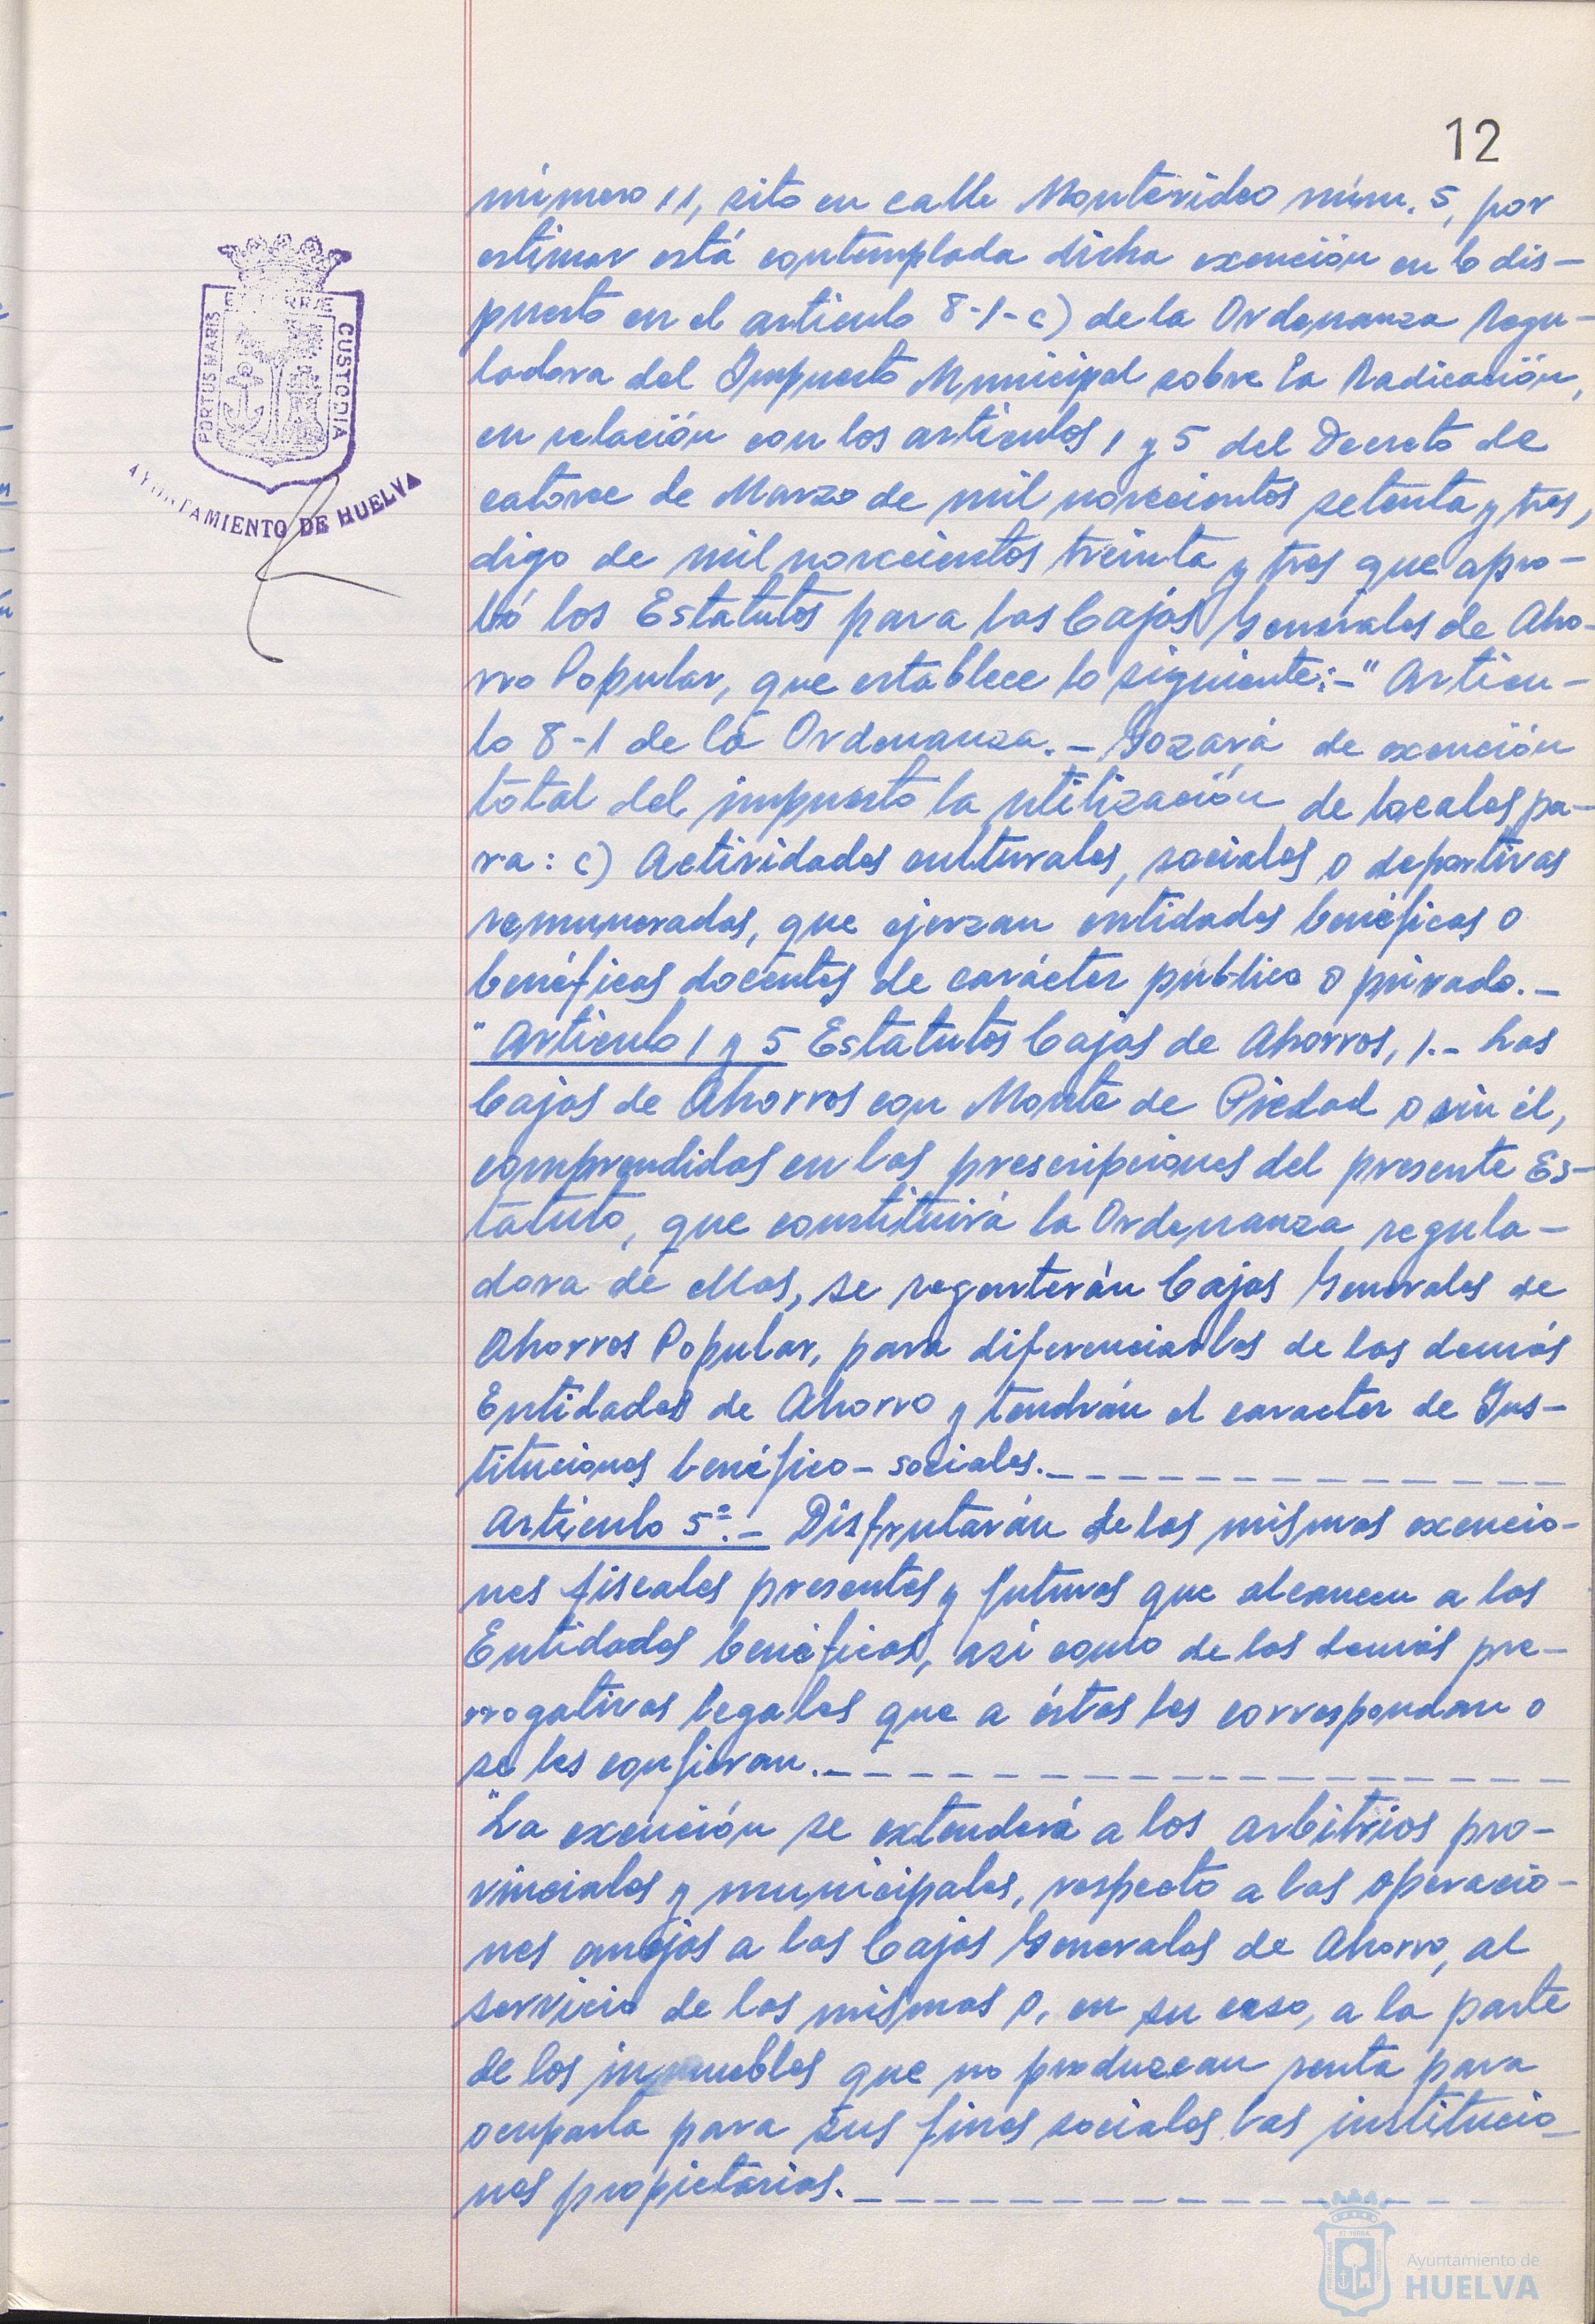 12
número 11, sito en calle Montevideo núm. 5, por
estimar está contemplada dicha exención en lo dis-
puesto en el artículo 8-1-c) de la Ordenanza Regu-
ladora del Impuesto Municipal sobre la Radicación,
en relación con los artículos 1 y 5 del Decreto de
catorce de Marzo de mil novecientos setenta y tres,
digo de mil novecientos treinta y tres que apro-
bó los Estatutos para las Cajas Generales de Aho-
rro Popular, que establece lo siguiente:-" Artícu-
lo 8-1 de la Ordenanza.- Gozará de exención
total del impuesto la utilización de locales pa-
ra: c) Actividades culturales, sociales o deportivas
remuneradas, que ejerzan entidades benéficas o
benéficas docentes de carácter público o privado.-
"Artículo 1 y 5 Estatutos Cajas de Ahorros, 1.- Las
Cajas de Ahorros con Monte de Piedad o sin él,
comprendidas en las prescripciones del presente Es-
tatuto, que constituirá la Ordenanza regula-
dora de ellas, se regenterán Cajas Generales de
Ahorros Popular, para diferenciarlas de las demás
Entidades de Ahorro y tendrán el caracter de Ins-
tituciones benéfico-sociales.-
Artículo 5º.- Disfrutarán de las mismas exencio-
nes fiscales presentes y futuras que alcancen a las
Entidades benéficas, así como de las demás pre-
rrogativas legales que a éstas les correspondan o
se les confieran.-
"La exención se extenderá a los arbitrios pro-
vinciales y municipales, respecto a las operacio-
nes anejas a las Cajas Generales de Ahorro, al
servicio de las mismas o, en su caso, a la parte
de los inmuebles que no produzcan renta para
ocuparla para sus fines sociales las institucio-
nes propietarias.-
PORTUS MARIS
ET TERRAE
CUSTODIA
AYUNTAMIENTO DE HUELVA
Ayuntamiento de
HUELVA